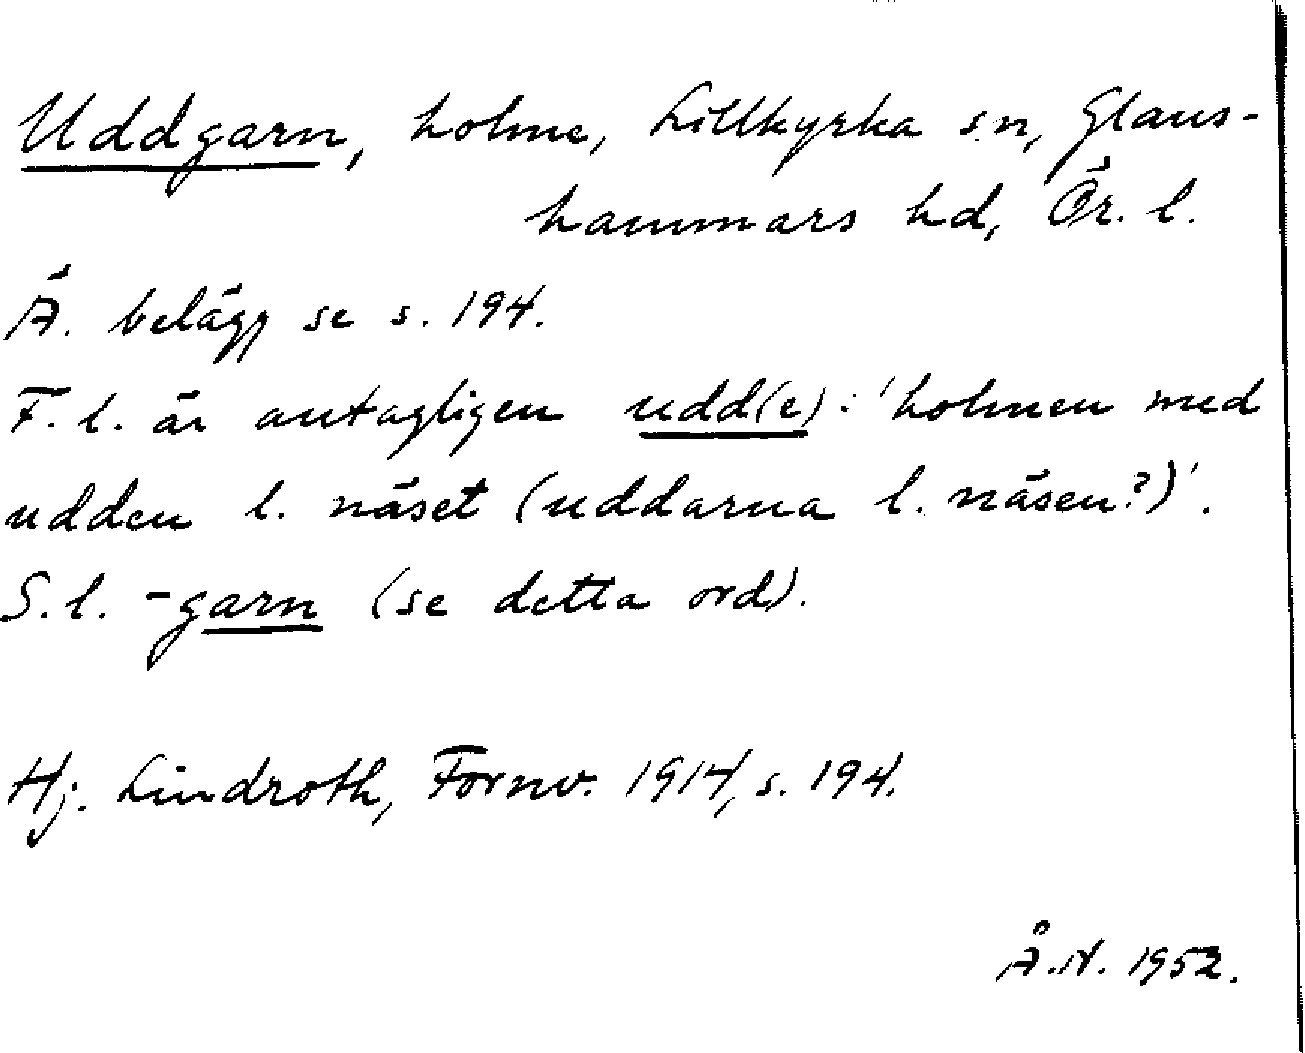 Uddgarn, holme, Lillkyrka sn, Glans-
hammars hd, Ör. l.
Ä. belägg se s. 194.
F. l. är antagligen udd(e): 'holmen med
udden l. näset (uddarna l. näsen?)'.
S. l. -garn (se detta ord).
Hj. Lindroth, Fornv. 1914, s. 194.
Å.N. 1952.